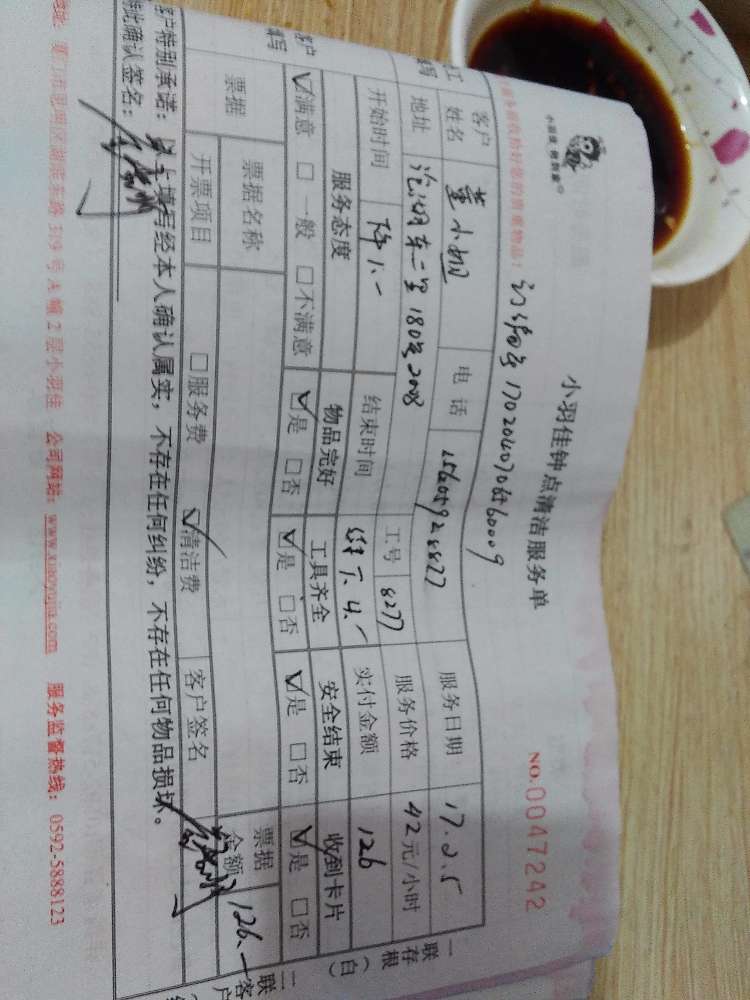 小羽佳钟点清洁服务单
NO.0047242
小羽佳 做到家
订单号 17020407056009
客户姓名 董小姐 电话 15605928877 服务日期 17.2.5
地址 沧湖东二里180号2008 工号 8277 服务价格 42元/小时
开始时间 下午1.- 结束时间 下午4.- 实付金额 126
服务态度 物品完好 工具齐全 安全结束 收到卡片
☑满意 □一般 □不满意 ☑是 □否 ☑是 □否 ☑是 □否 ☑是 □否
票据 票据名称 票据金额 126.-
开票项目 □服务费 ☑清洁费 客户签名
客户特别承诺：以上填写经本人确认属实，不存在任何纠纷，不存在任何物品损坏。
特此确认签名：
地址：厦门市思明区湖滨东路319号A幢2层小羽佳 公司网站：www.xiaoyujia.com 服务监督热线：0592-5888123
一联存根（白）
二联客户